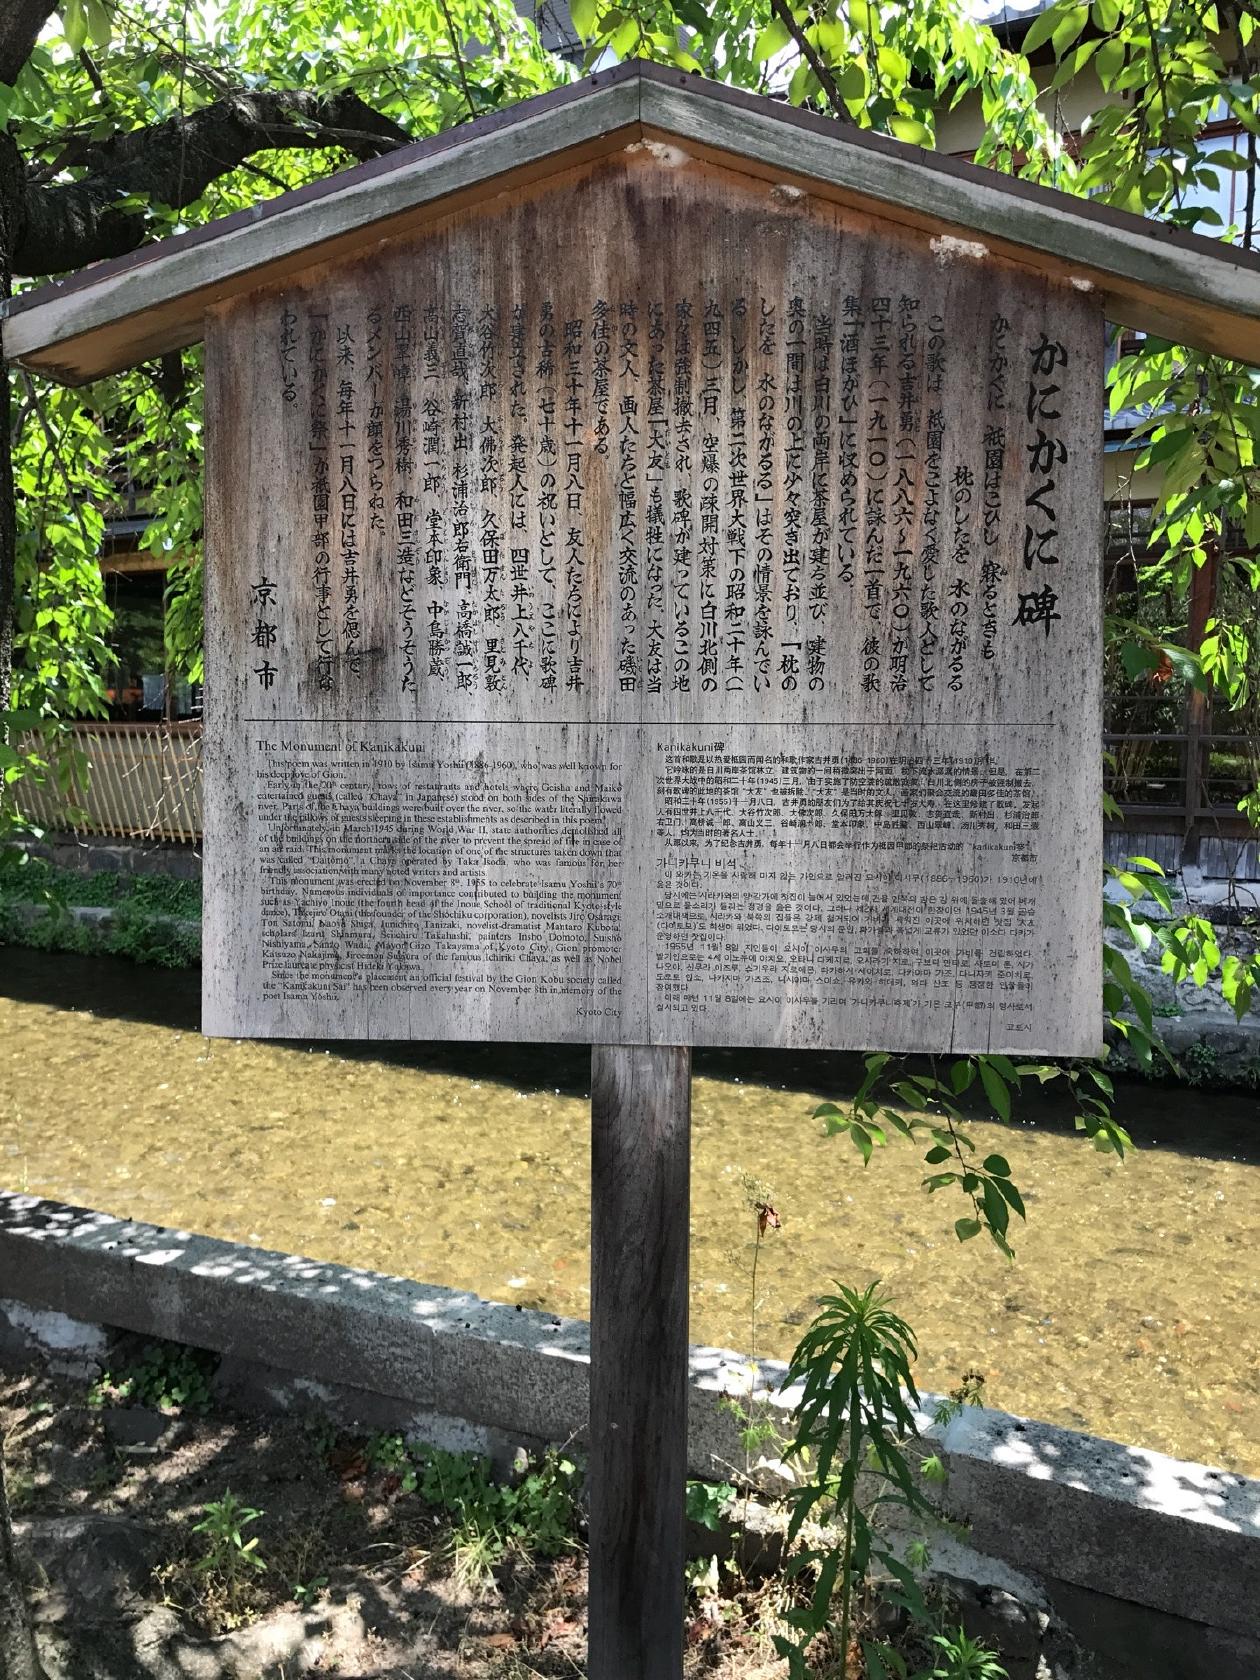 かにかくに碑
かにかくに 祇園はこひし 寐るときも
枕のしたを 水のながるる
この歌は、祇園をこよなく愛した歌人として
知られる吉井勇(一八八六~一九六〇)が明治
四十三年(一九一〇)に詠んだ一首で、彼の歌
集「酒ほがひ」に収められている。
当時は白川の両岸に茶屋が建ち並び、建物の
奥の一間は川の上に少々突き出ており、「枕の
したを 水のながるる」はその情景を詠んでい
る。しかし、第二次世界大戦下の昭和二十年(一
九四五)三月、空爆の疎開対策に白川北側の
家々は強制撤去され、歌碑が建っているこの地
にあった茶屋「大友」も犠牲になった。大友は当
時の文人、画人たちと幅広く交流のあった磯田
多佳の茶屋である。
昭和三十年十一月八日、友人たちにより吉井
勇の古稀(七十歳)の祝いとして、ここに歌碑
が建立された。発起人には、四世井上八千代、
大谷竹次郎、大佛次郎、久保田万太郎、里見弴、
志賀直哉、新村出、杉浦治郎右衛門、高橋誠一郎、
高山義三、谷崎潤一郎、堂本印象、中島勝蔵、
西山翠嶂、湯川秀樹、和田三造などそうそうた
るメンバーが顔をつらねた。
以来、毎年十一月八日には吉井勇を偲んで、
「かにかくに祭」が祇園甲部の行事として行な
われている。
京都市
The Monument of Kanikakuni
This poem was written in 1910 by Isamu Yoshii (1886-1960), who was well known for
his deep love of Gion.
Early in the 20th century, rows of restaurants and hotels where Geisha and Maiko
entertained guests, (called "Chaya" in Japanese) stood on both sides of the Shirakawa
river. Parts of the Chaya buildings were built over the river, so the water literally flowed
under the pillows of guests sleeping in these establishments as described in this poem.
Unfortunately, in March 1945 during World War II, state authorities demolished all
of the buildings on the northern side of the river to prevent the spread of fire in case of
an air raid. This monument marks the location of one of the structures taken down that
was called "Daitomo", a Chaya operated by Taka Isoda, who was famous for her
friendly association with many noted writers and artists.
This monument was erected on November 8th, 1955 to celebrate Isamu Yoshii's 70th
birthday. Numerous individuals of importance contributed to building the monument
such as Yachiyo Inoue (the fourth head of the Inoue School of traditional Kyoto-style
dance), Takejiro Otani (the founder of the Shochiku corporation), novelists Jiro Osaragi,
Ton Satomi, Naoya Shiga, Junichiro Tanizaki, novelist-dramatist Mantaro Kubota,
scholars Izuru Shinmura, Seiichiro Takahashi, painters Insho Domoto, Suisho
Nishiyama, Sanzo Wada, Mayor Gizo Takayama of Kyoto City, Gion promoter
Katsuzo Nakajima, Jiroemon Sugiura of the famous Ichiriki Chaya, as well as Nobel
Prize laureate physicist Hideki Yukawa.
Since the monument's placement an official festival by the Gion Kobu society called
the "Kanikakuni Sai" has been observed every year on November 8th in memory of the
poet Isamu Yoshii.
Kyoto City
Kanikakuni碑
这首和歌是以热爱祗园而闻名的和歌作家吉井勇(1886-1960)在明治四十三年(1910)所作。
次世界大战中的昭和二十年(1945)三月,
昭和三十年(1955)十一月八日,吉井勇的朋友们为了给其庆祝七十岁大寿,在这里修建了歌碑。发起
人有四世井上八千代、大谷竹次郎、大佛次郎、久保田万太郎、里见弴、志贺直哉、新村出、杉浦治郎
右卫门、高桥诚一郎、高山义三、谷崎润一郎、堂本印象、中岛胜藏、西山翠嶂、汤川秀树、和田三造
等人,均为当时的著名人士。
从那以来,为了纪念吉井勇,每年十一月八日都会举行作为祗园甲部的祭祀活动的"kanikakuni祭"。
京都市
가니카쿠니 비석
교토시